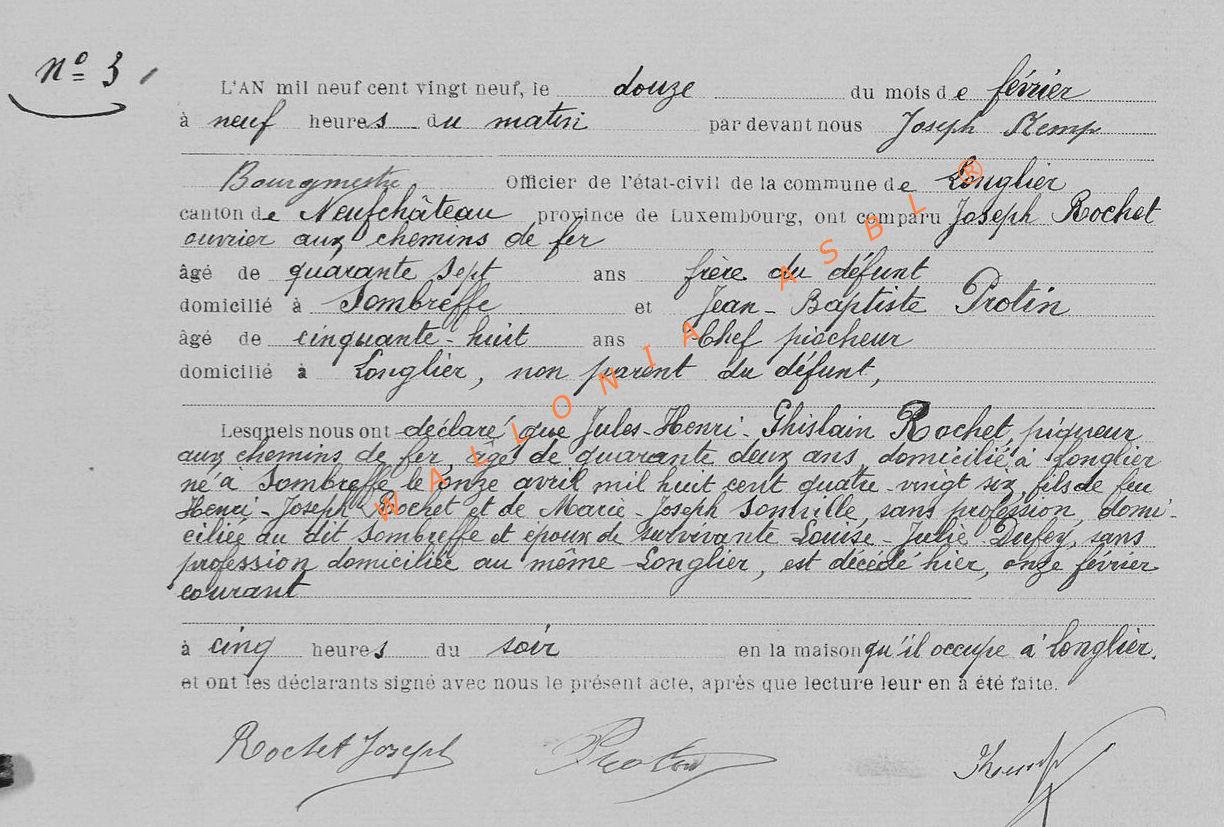 nº 3
L'AN mil neuf cent vingt neuf, le douze du mois de février
à neuf heures du matin par devant nous Joseph Kemp
Bourgmestre Officier de l'état-civil de la commune de Longlier
canton de Neufchâteau province de Luxembourg, ont comparu Joseph Rochet
ouvrier aux chemins de fer
âgé de quarante sept ans frère du défunt
domicilié à Sombreffe et Jean-Baptiste Protin
âgé de cinquante-huit ans Chef piocheur
domicilié à Longlier, non parent du défunt,
Lesquels nous ont déclaré que Jules-Henri-Ghislain Rochet, piqueur
aux chemins de fer, âgé de quarante deux ans, domicilié à Longlier
né à Sombreffe le onze avril mil huit cent quatre-vingt six, fils de feu
Henri-Joseph Rochet et de Marie-Joseph sans profession, domi-
ciliée au dit Sombreffe et époux de survivante Louise-Julie Dufey, sans
profession domiciliée au même Longlier, est décédé hier, onze février
courant
à cinq heures du soir en la maison qu'il occupe à Longlier.
et ont les déclarants signé avec nous le présent acte, après que lecture leur en a été faite.
Rochet Joseph Protin
WALLONIA ASBL ®